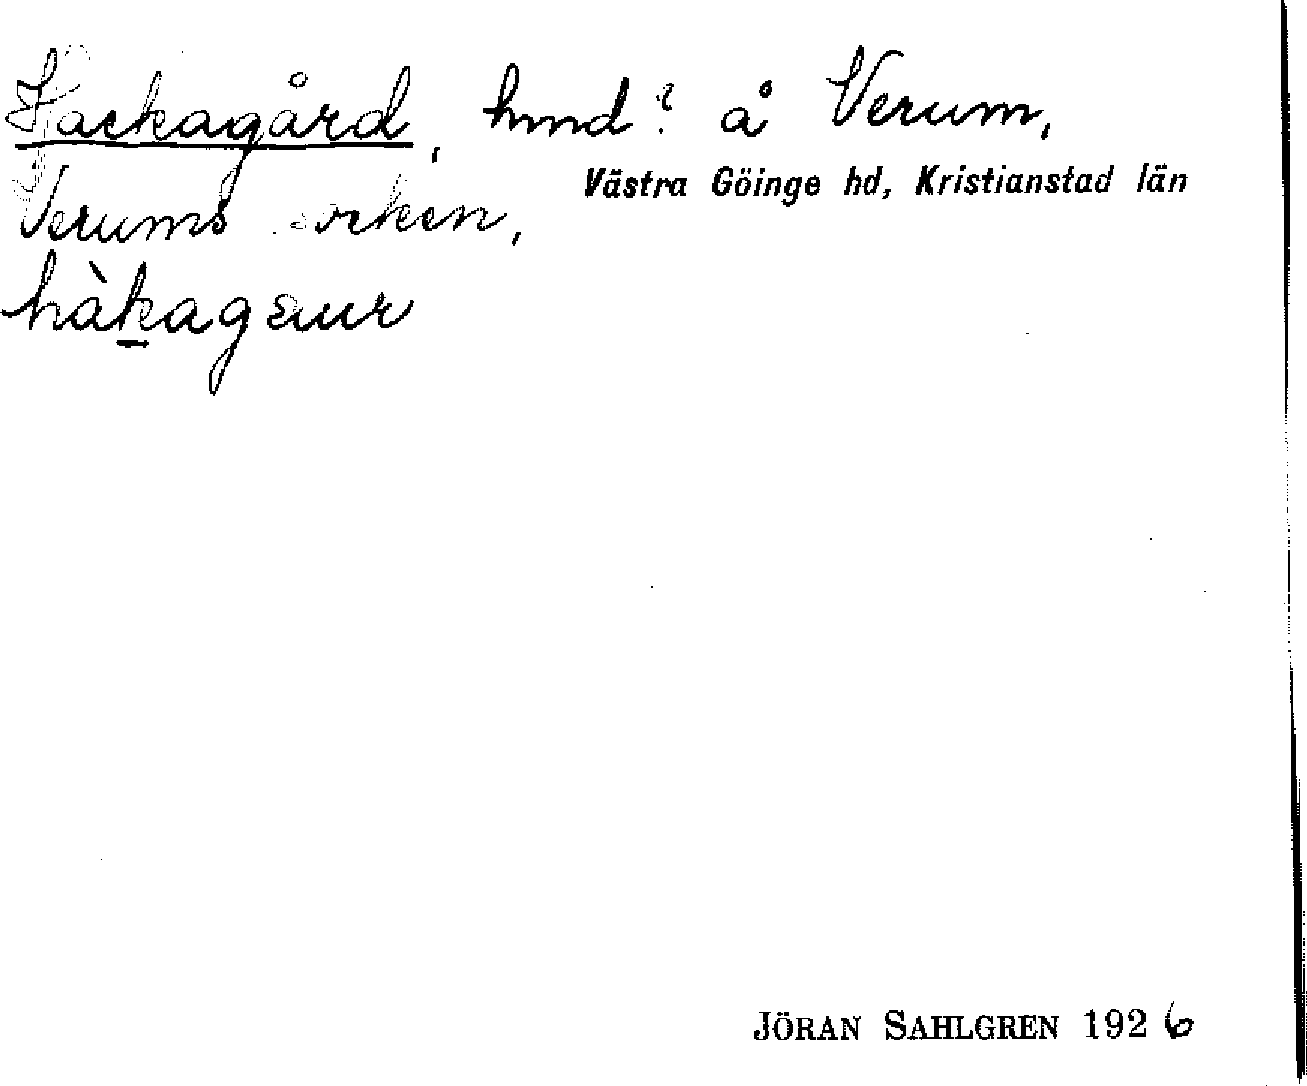 Hackagård, hmd? å Verum,
Västra Göinge hd, Kristianstad län
Verums socken,
hàkagɛuʀ
JÖRAN SAHLGREN 1926